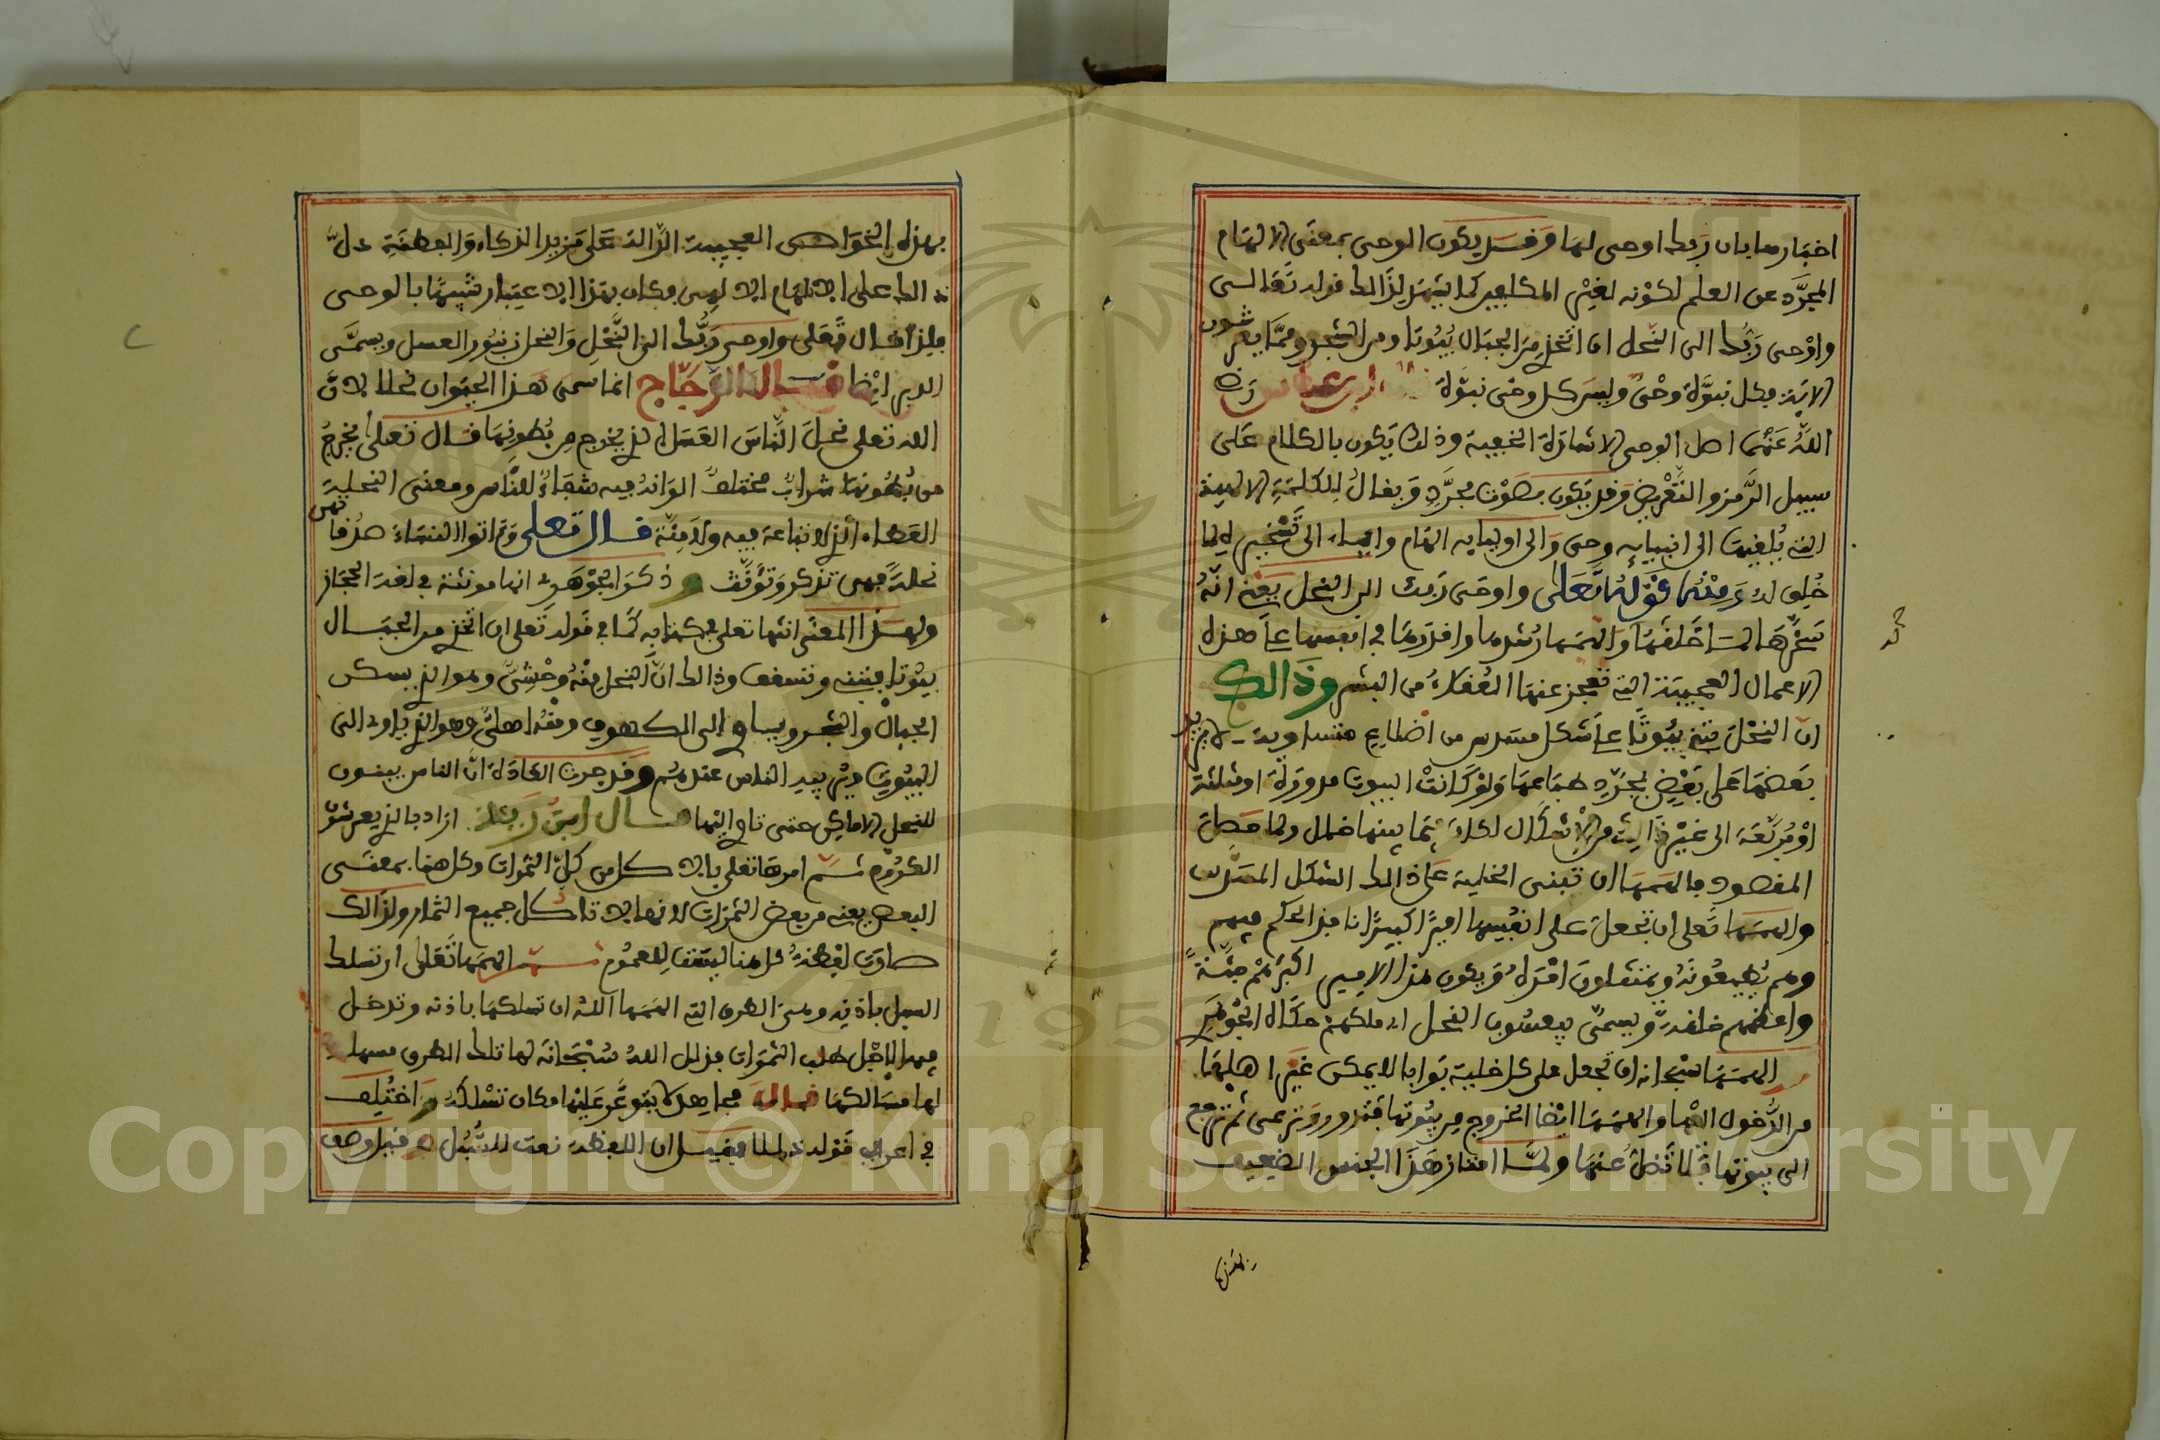 اخبارها بان ربك اوحى لها وقد يكون الوحى بمعنى الالهام
المجرد عن العلم لكونه لغير المكلفين كما يشهد لذالك قوله تعالى
واوحى ربك الى النحل ان اتخذى من الجبال بيوتا ومن الشجر ومما يعرشون
الاية فكل نبوة وحى وليس كل وحى نبوة ابن عباس رضى
الله عنهما اصل الوحى الاشارة الخفية وذلك يكون بالكلام على
سبيل الرمز والتعريض وقد يكون بصوت مجرد ويقال للكلمة الالهية
التى يلقيها الى انبيايه وحى والى اوليايه الهام والهاء الى تسخير لما
خلق له ومنه قوله تعالى واوحى ربك الى النحل يعنى انه
سخرها لما خلقها والهمها رشدها وقدر لها فى انفسها على هذه
الاعمال العجيبة التى تعجز عنها العقلاء من البشر وذالك
ان النحل تبنى بيوتا على شكل مسدس من اضلاع متساوية لا يزيد
بعضها على بعض بمجرد طباعها ولو كانت البيوت مدورة او مثلثة
او مربعة الى غير ذالك من الاشكال لكان فيما بينها خلل ولما حصل
المقصود فالهمها ان تبنى الخلية على ذالك الشكل المسدس
والهمها تعلى ان تجعل على انفسها اميرا كبيرا نافذ الحكم فيهم
وهم يطيعونه ويمتثلون امره ويكون هذا الامير اكبرهم جثة
واعظمهم خلقة ويسمى يعسوب النحل اى ملكهم حكاه الجوهرى
الهمها سبحانه ان تجعل على كل خلية بوابا لا يمكن غير اهلها
من الدخول اليها والهمها ايضا الخروج من بيوتها فتدور وترعى ثم ترجع
الى بيوتها ولا تضل عنها ولما امتاز هذا الجنس الضعيف
بهذه
بهذه الخواص العجيبة الدالة على مزيد الذكاء والفطنة دل
ذالك على الالهام الالهى فكان هذا الاعتبار شبيها بالوحى
فلذا قال تعلى واوحى ربك الى النحل والنحل زنبور العسل ويسمى
الدبر ايضا قال الزجاج انما سمى هذا الحيوان نحلا لان
الله تعلى نحل الناس العسل الذى يخرج من بطونها قال تعلى يخرج
من بطونها شراب مختلف الوانه فيه شفاء للناس ومعنى النحلة
العطاء الذى لا تباعة فيه ولا منة قال تعلى وءاتوا النساء صدقاتهن
نحلة فهى تذكر وتؤنث وذكر الجوهرى انها مونثة فى لغة الحجاز
ولهذا المعنى انثها تعلى فى كتابه كما فى قوله تعلى ان اتخذى من الجبال
بيوتا فتبنى وتسقف وذالك ان النحل منه وحشى وهو الذى يسكن
الجبال والشجر وياوى الى الكهوف ومنه اهلى وهو الذى ياوى الى
البيوت ويربيه الناس عندهم وقد جرت العادة ان الناس يبنون
للنحل الاماكن حتى تاوى اليها قال ابن زيد اراد بالذى يعرشون
الكروم ثم امرها تعلى بالاكل من كل الثمرات وكل هنا بمعنى
البعض يعنى من بعض الثمرات لانها لا تاكل جميع الثمار ولذالك
صارت لفظة كل هنا ليست للعموم ثم الهمها تعلى ان تسلك
السبل باذنه وهى الطرق التى الهمها الله ان تسلكها باذنه وتدخل
فيها لاجل طلب الثمرات فذلل الله سبحانه لها تلك الطرق فسهل
لها مسالكها قال مجاهد لا يتوعر عليها مكان تسلكه واختلف
فى اعراب قوله ذللا فقيل ان اللفظة نعت للسبل وقيل وصف
Copyright © King Saud University
195